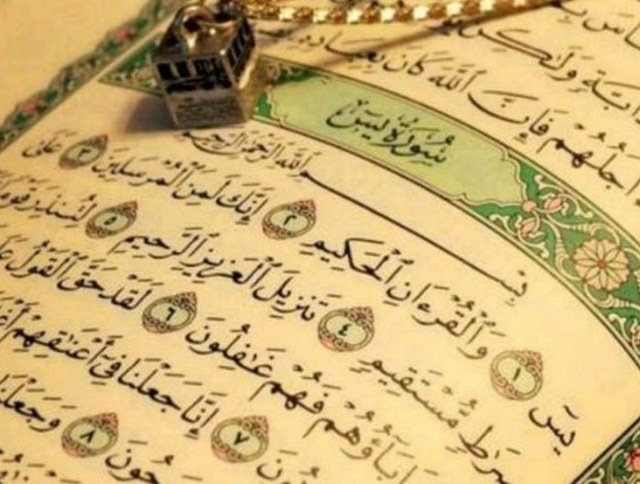 وَلَٰكِن
أَجَلُهُمْ فَإِنَّ ٱللَّهَ كَانَ بِعِبَادِهِۦ
سُورَةُ يسٓ
بِسْمِ ٱللَّهِ ٱلرَّحْمَٰنِ ٱلرَّحِيمِ
يسٓ ١ وَٱلْقُرْءَانِ ٱلْحَكِيمِ ٢ إِنَّكَ لَمِنَ ٱلْمُرْسَلِينَ ٣ عَلَىٰ
صِرَٰطٍ مُّسْتَقِيمٍ ٤ تَنزِيلَ ٱلْعَزِيزِ ٱلرَّحِيمِ ٥ لِتُنذِرَ قَوْمًا
ءَابَآؤُهُمْ فَهُمْ غَٰفِلُونَ ٦ لَقَدْ حَقَّ ٱلْقَوْلُ
٧ إِنَّا جَعَلْنَا فِىٓ أَعْنَٰقِهِمْ
٨ وَجَعَلْنَا